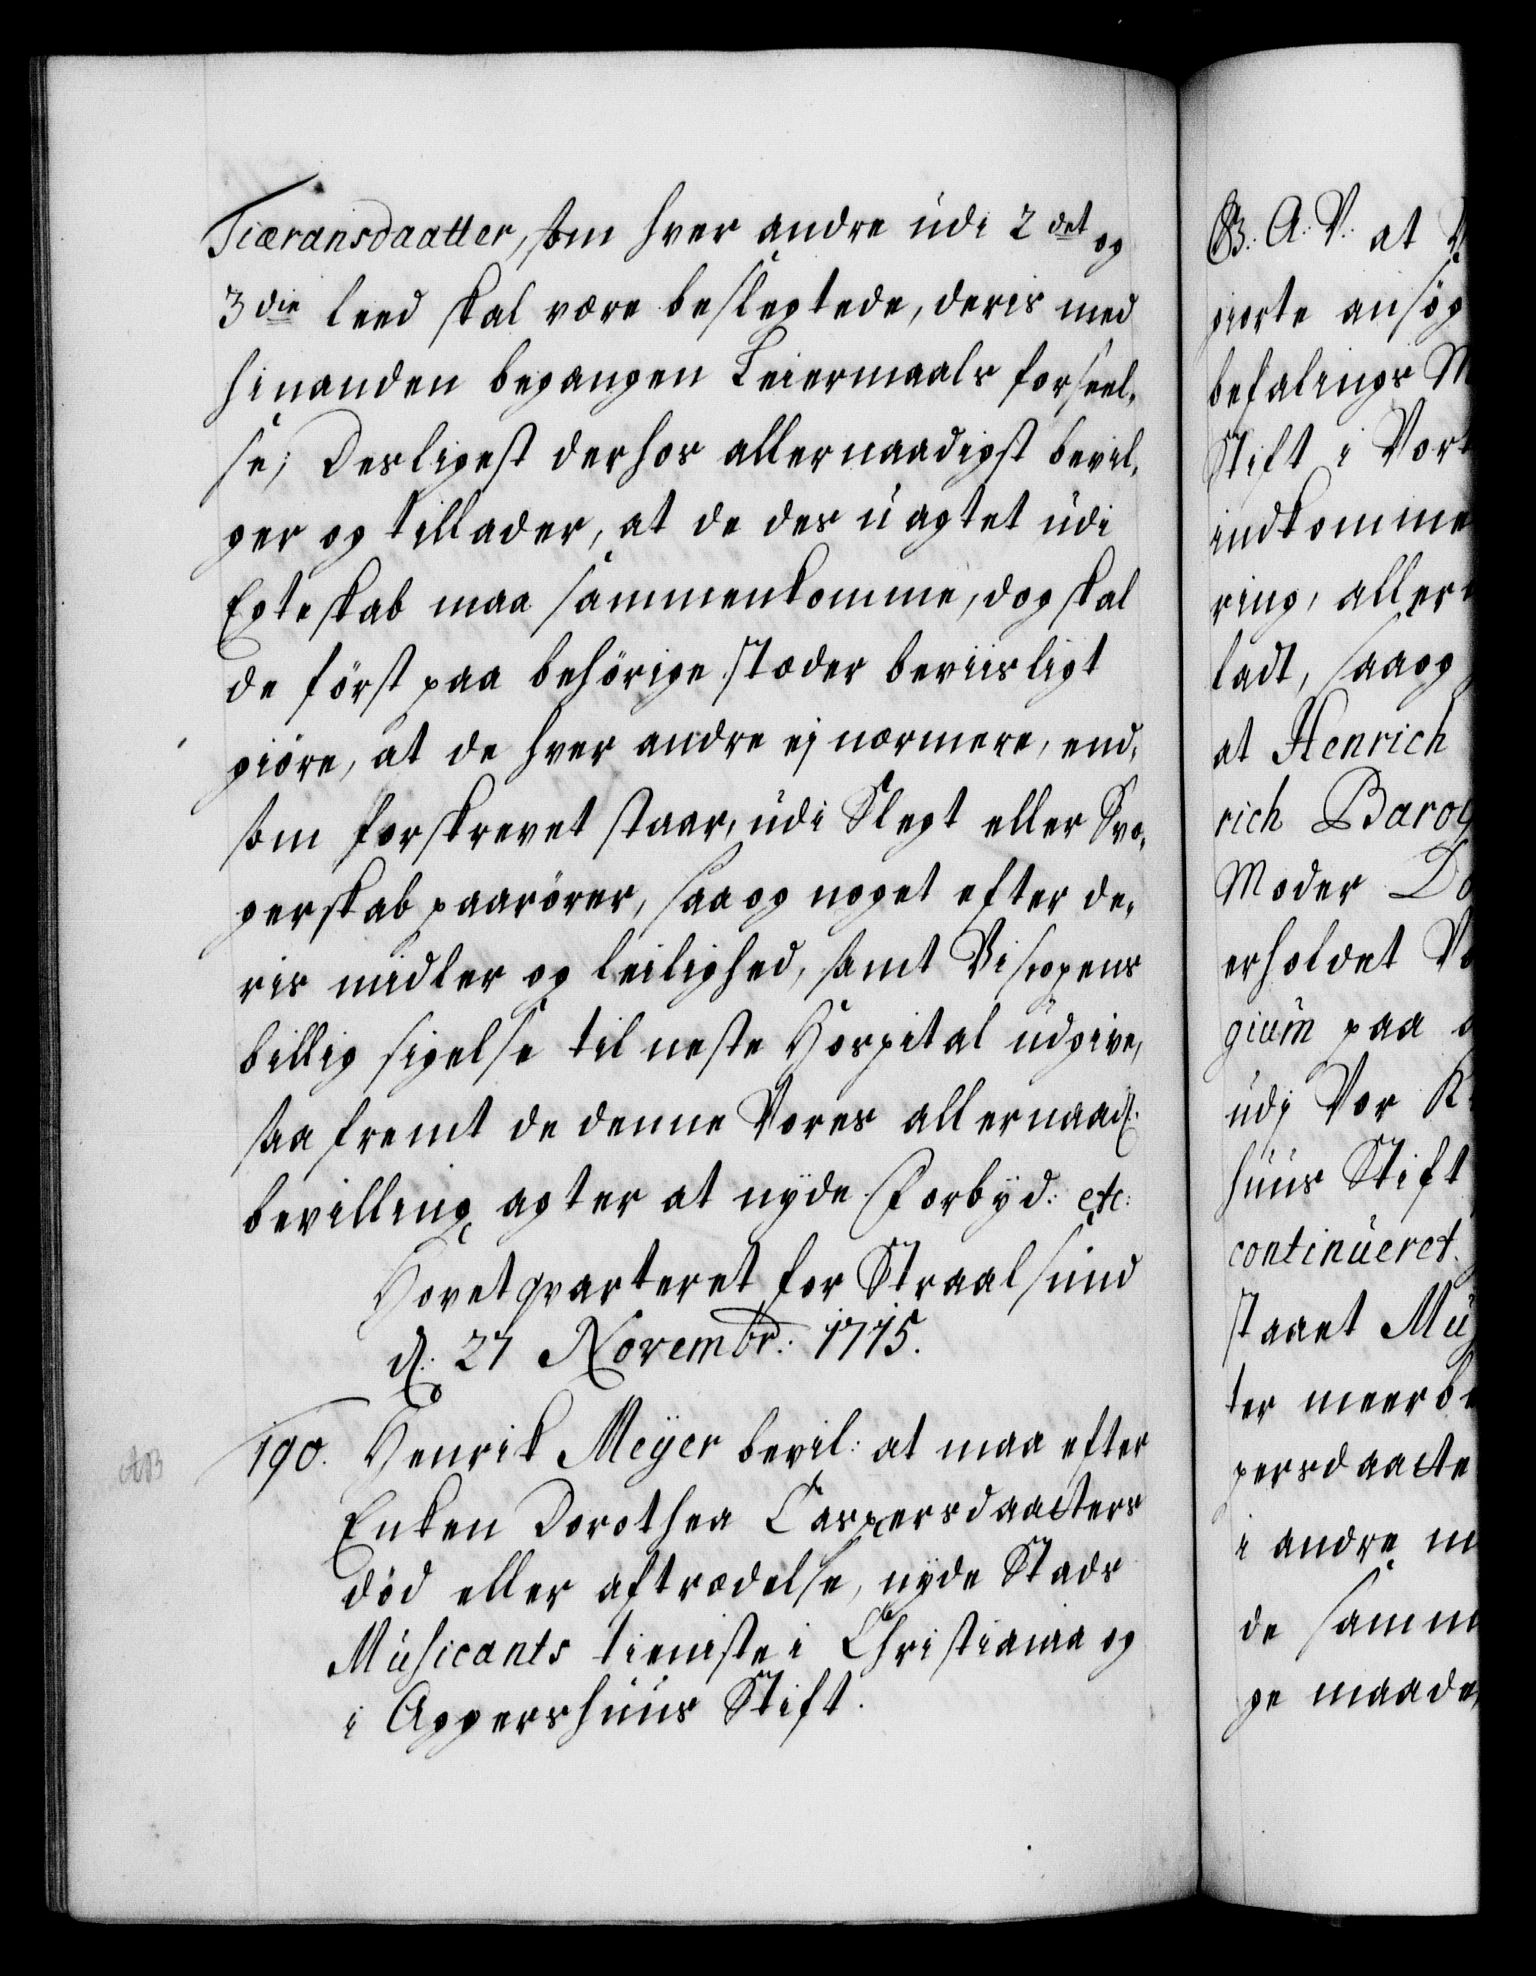 Tiæransdaatter, som hver andre udi 2det og
3die leed skal være beslegtede, deris med
hinanden begangen Leiermaals forseel,
se; Desligest derhos allernaadigst bevil,
ger og tillader, at de des uagtet udi
Egteskab maa sammenkomme, dog skal
de först paa behörige stæder beviisligt
giöre, at de hver andre ej nærmere, end,
som forskrevet staar, udi Slegt eller Svo,
gerskab paarörer, saa og noget efter de,
ris midler og leilighed, samt Biscopens
billig sigelse til neste Hospital udgive,
saa fremt de denne Vores allernaad:
bevilling agter at nyde. Forbyd: etc:
Hovetqvarteret for Straalsund
d: 27 Novembr: 1715.
190. Henrik Meÿer bevil: at maa efter
Enken Dorothea Caspersdaatters
död eller aftrædelse, nyde Stads
Musicants tieniste i Christiania og
i Aggershuus Stift.
AB
B: A: V: at
giorte ansög
befalings M
Stift i Vort
indkomme
ring, aller
ladt, saa og
at Henrich
rich Barog
Moder Do
erholdet Vo
gium paa
udj Vor K
huus Stift
continueret
staaet Mu
ter meerbe
persdaatte
i andre m
de samm
ge maade,